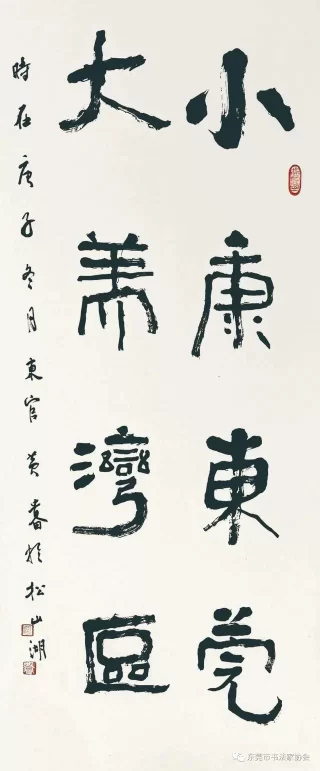 小康東莞
大美灣區
時在庚子冬月東官黄春於松山湖
东莞市书法家协会